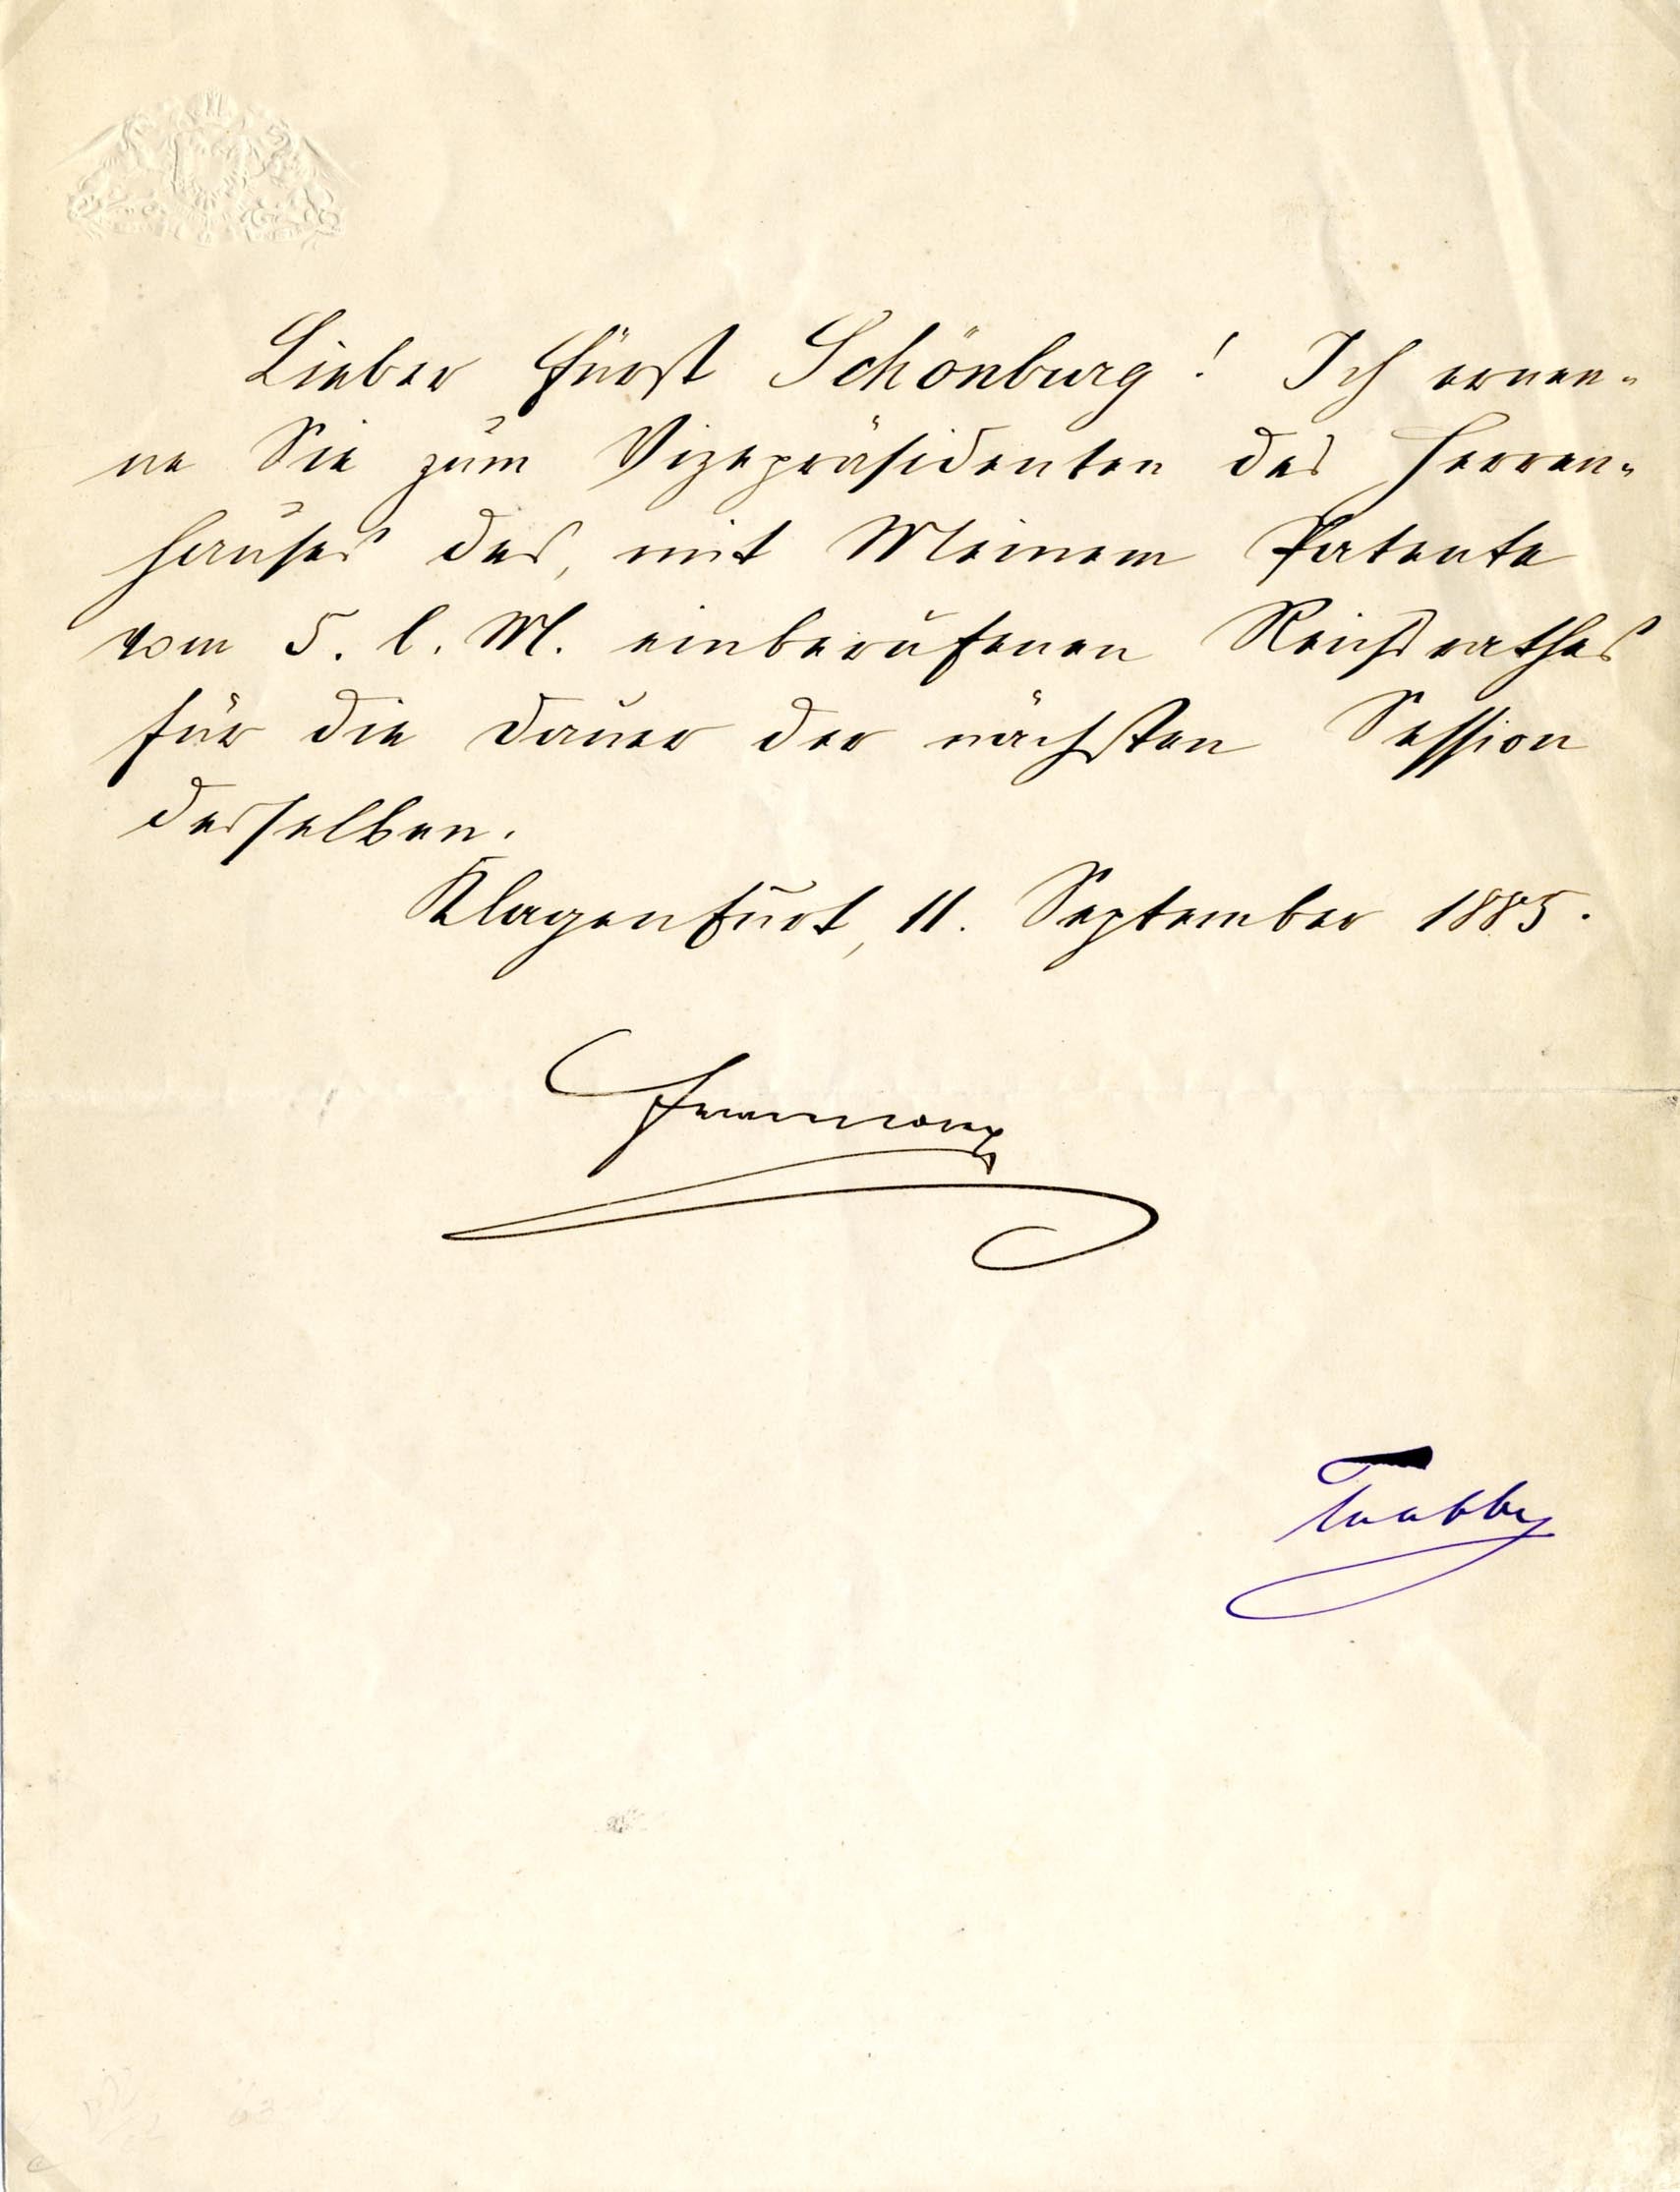 Lieber Fürst Schönburg! Ich ernen-
ne Sie zum Vizepräsidenten des Herren-
hauses des, mit Meinem Patente
vom 5. l. M. einberufenen Reichsrathes
für die Dauer der nächsten Session
desselben.
Klagenfurt, 11. September 1885.
Franz Joseph
Taaffe